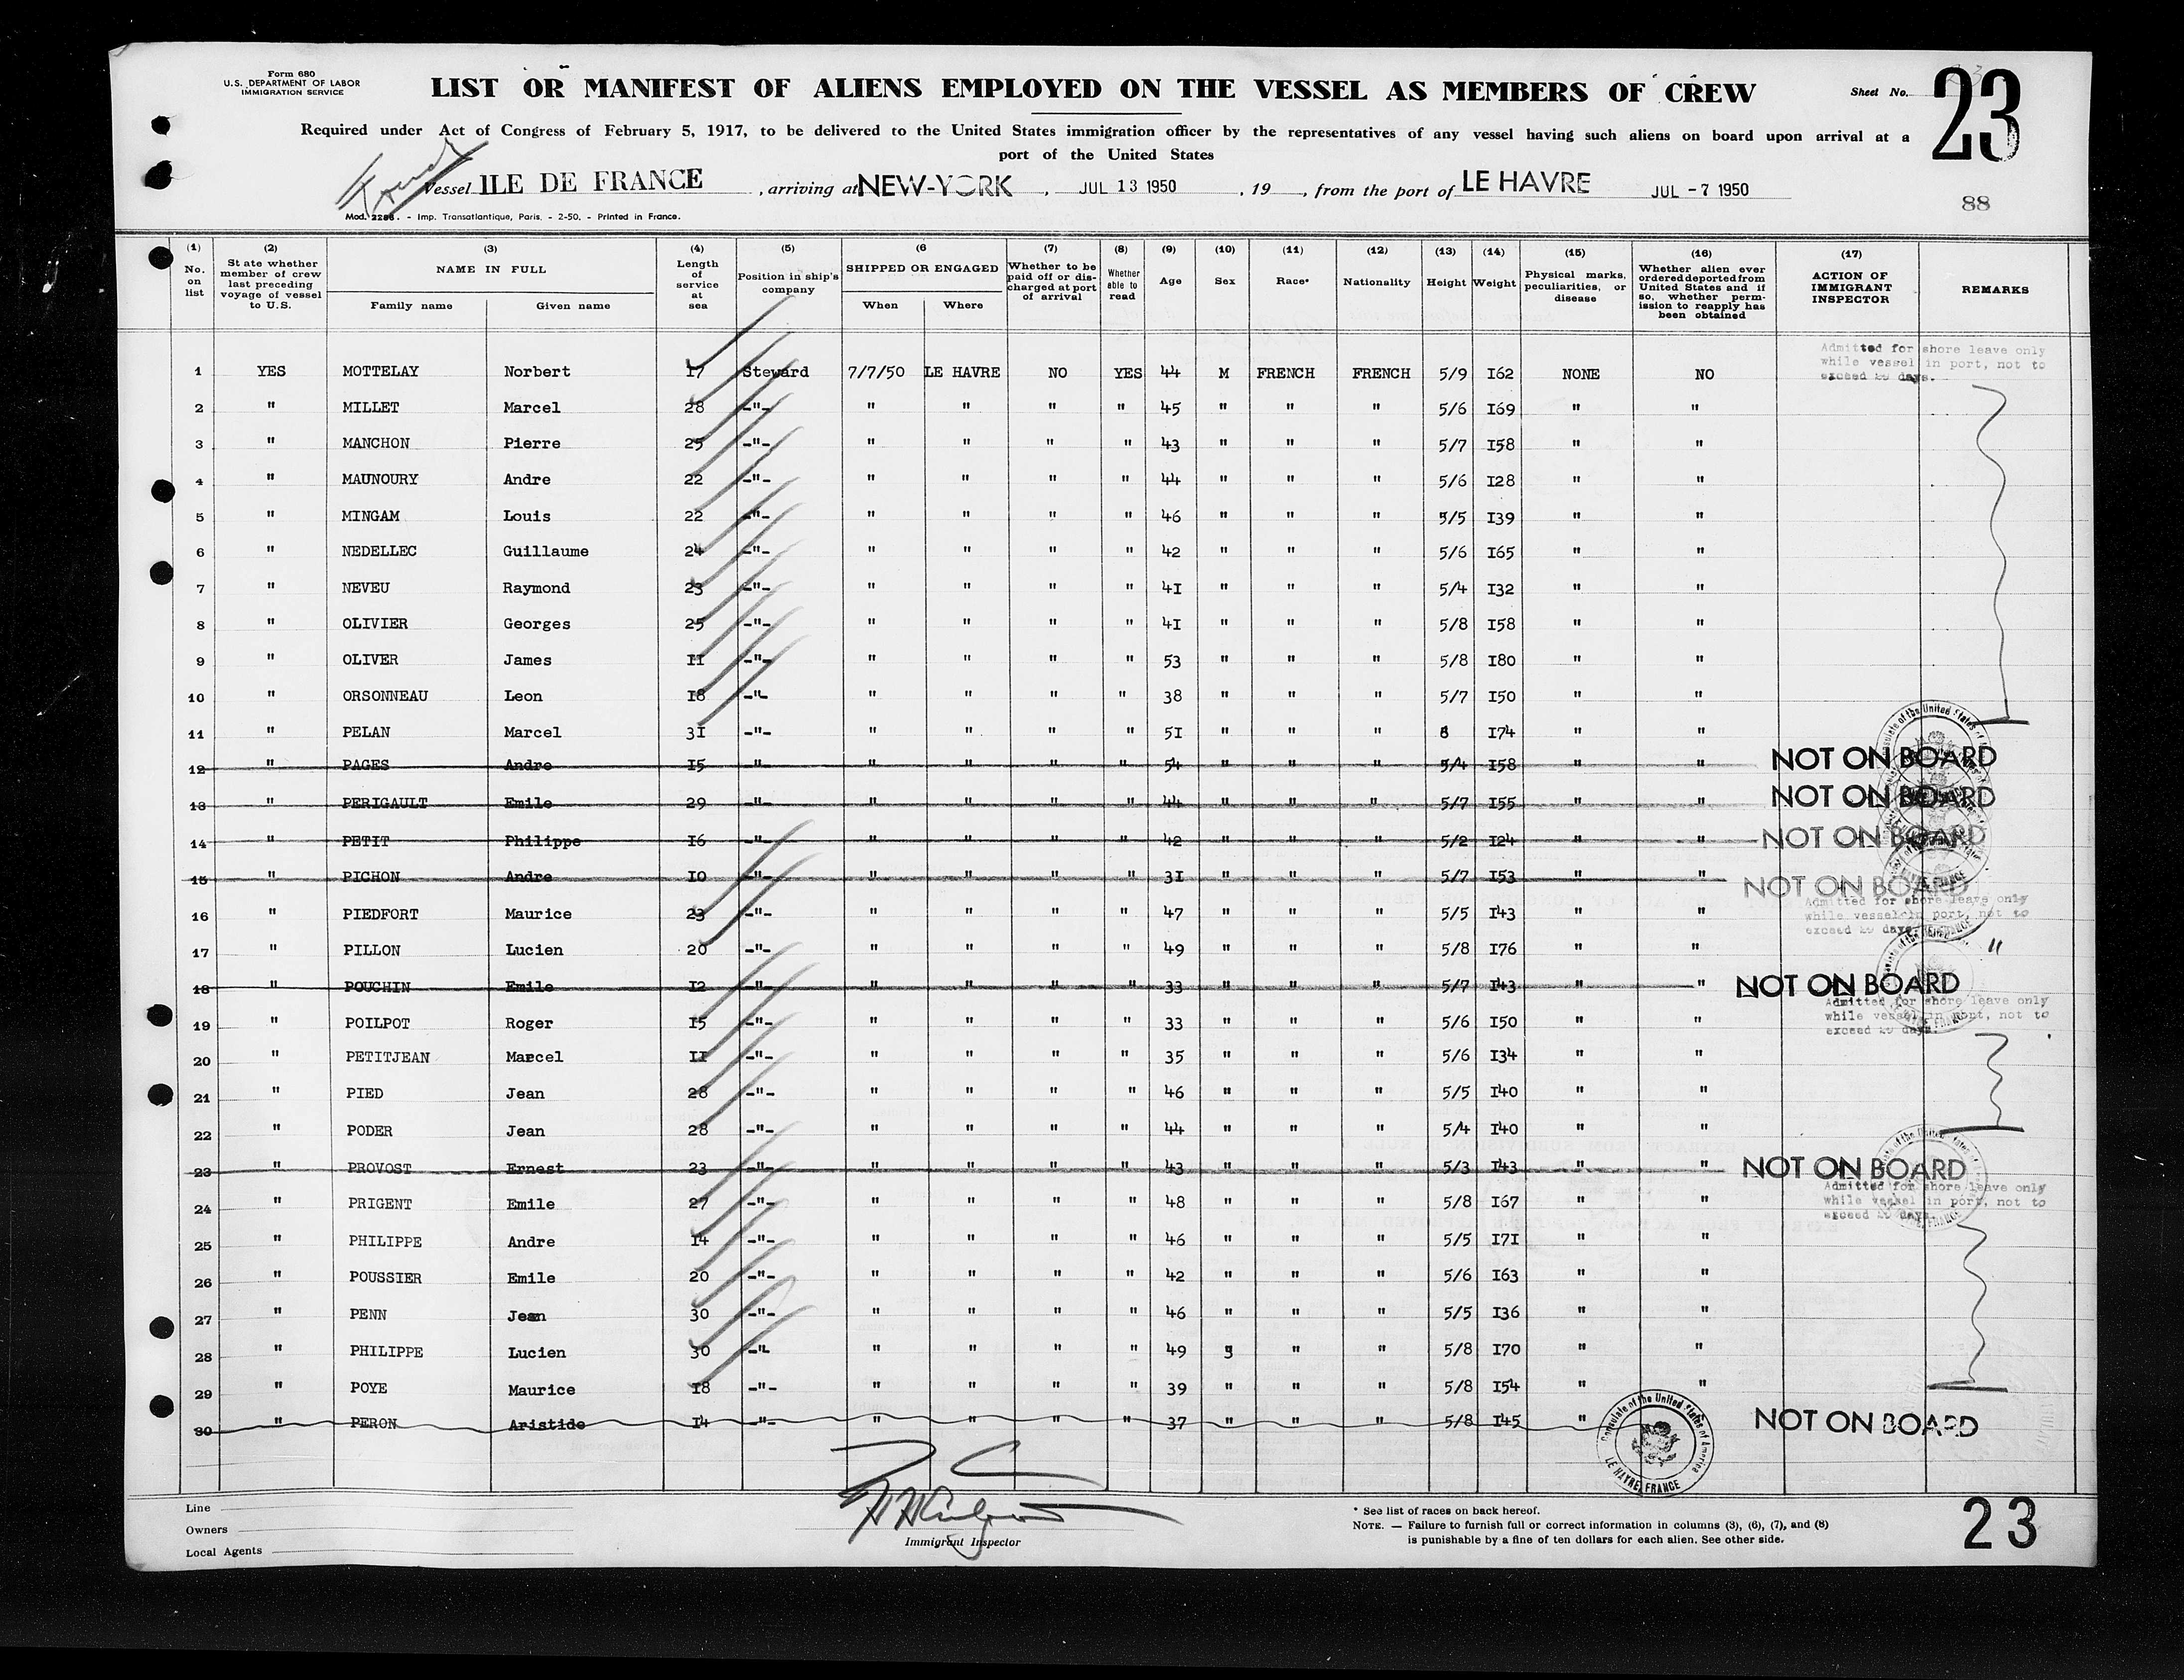 Form 680
U.S. DEPARTMENT OF LABOR
IMMIGRATION SERVICE
LIST OR MANIFEST OF ALIENS EMPLOYED ON THE VESSEL AS MEMBERS OF CREW
Sheet No. 23
Required under Act of Congress of February 5, 1917, to be delivered to the United States immigration officer by the representatives of any vessel having such aliens on board upon arrival at a
port of the United States
French
Vessel ILE DE FRANCE, arriving at NEW-YORK, JUL 13 1950, 19, from the port of LE HAVRE JUL -7 1950
Mod. 2286. - Imp. Transatlantique, Paris. - 2-50. - Printed in France.
88
(1) (2) (3) (4) (5) (6 (7) (8) (9) (10) (11) (12) (13) (14) (15) (16) (17)
No. on list
State whether member of crew last preceding voyage of vessel to U.S.
NAME IN FULL
Family name
Given name
Length of service at sea
Position in ship's company
SHIPPED OR ENGAGED
When
Where
Whether to be paid off or discharged at port of arrival
Whether able to read
Age
Sex
Race*
Nationality
Height
Weight
Physical marks, peculiarities, or disease
Whether alien ever ordered deported from United States and if so, whether permission to reapply has been obtained
ACTION OF IMMIGRANT INSPECTOR
REMARKS
1 YES MOTTELAY Norbert 17 Steward 7/7/50 LE HAVRE NO YES 44 M FRENCH FRENCH 5/9 I62 NONE NO Admitted for shore leave only while vessel in port, not to exceed 29 days.
2 " MILLET Marcel 28 -"- " " " " 45 " " " 5/6 I69 " "
3 " MANCHON Pierre 25 -"- " " " " 43 " " " 5/7 I58 " "
4 " MAUNOURY Andre 22 -"- " " " " 44 " " " 5/6 I28 " "
5 " MINGAM Louis 22 -"- " " " " 46 " " " 5/5 I39 " "
6 " NEDELLEC Guillaume 24 -"- " " " " 42 " " " 5/6 I65 " "
7 " NEVEU Raymond 23 -"- " " " " 4I " " " 5/4 I32 " "
8 " OLIVIER Georges 25 -"- " " " " 4I " " " 5/8 I58 " "
9 " OLIVER James II -"- " " " " 53 " " " 5/8 I80 " "
10 " ORSONNEAU Leon I8 -"- " " " " 38 " " " 5/7 I50 " "
11 " PELAN Marcel 3I -"- " " " " 5I " " " I74 " "
12 " PAGES Andre I5 -"- " " " " 54 " " " 5/4 I58 " " NOT ON BOARD
13 " PERIGAULT Emile 29 -"- " " " " 44 " " " 5/7 I55 " " NOT ON BOARD
14 " PETIT Philippe I6 -"- " " " " 42 " " " 5/2 I24 " " NOT ON BOARD
15 " PICHON Andre I0 -"- " " " " 3I " " " 5/7 I53 " " NOT ON BOARD
16 " PIEDFORT Maurice 23 -"- " " " " 47 " " " 5/5 I43 " " Admitted for shore leave only while vessel in port, not to exceed 29 days.
17 " PILLON Lucien 20 -"- " " " " 49 " " " 5/8 I76 " " "
18 " POUCHIN Emile I2 -"- " " " " 33 " " " 5/7 I43 " " NOT ON BOARD
19 " POILPOT Roger I5 -"- " " " " 33 " " " 5/6 I50 " " Admitted for shore leave only while vessel in port, not to exceed 29 days.
20 " PETITJEAN Marcel II -"- " " " " 35 " " " 5/6 I34 " "
21 " PIED Jean 28 -"- " " " " 46 " " " 5/5 I40 " "
22 " PODER Jean 28 -"- " " " " 44 " " " 5/4 I40 " "
23 " PROVOST Ernest 23 -"- " " " " 43 " " " 5/3 I43 " " NOT ON BOARD
24 " PRIGENT Emile 27 -"- " " " " 48 " " " 5/8 I67 " " Admitted for shore leave only while vessel in port, not to exceed 29 days.
25 " PHILIPPE Andre I4 -"- " " " " 46 " " " 5/5 I7I " "
26 " POUSSIER Emile 20 -"- " " " " 42 " " " 5/6 I63 " "
27 " PENN Jean 30 -"- " " " " 46 " " " 5/5 I36 " "
28 " PHILIPPE Lucien 30 -"- " " " " 49 " " 5/8 I70 " "
29 " POYE Maurice I8 -"- " " " " 39 " " " 5/8 I54 " "
30 " PERON Aristide I4 -"- " " " " 37 " " " 5/8 I45 " NOT ON BOARD
Consulate of the United States of America
LE HAVRE, FRANCE
Line
Owners
Local Agents
Immigrant Inspector
* See list of races on back hereof.
NOTE. — Failure to furnish full or correct information in columns (3), (6), (7), and (8)
is punishable by a fine of ten dollars for each alien. See other side.
23